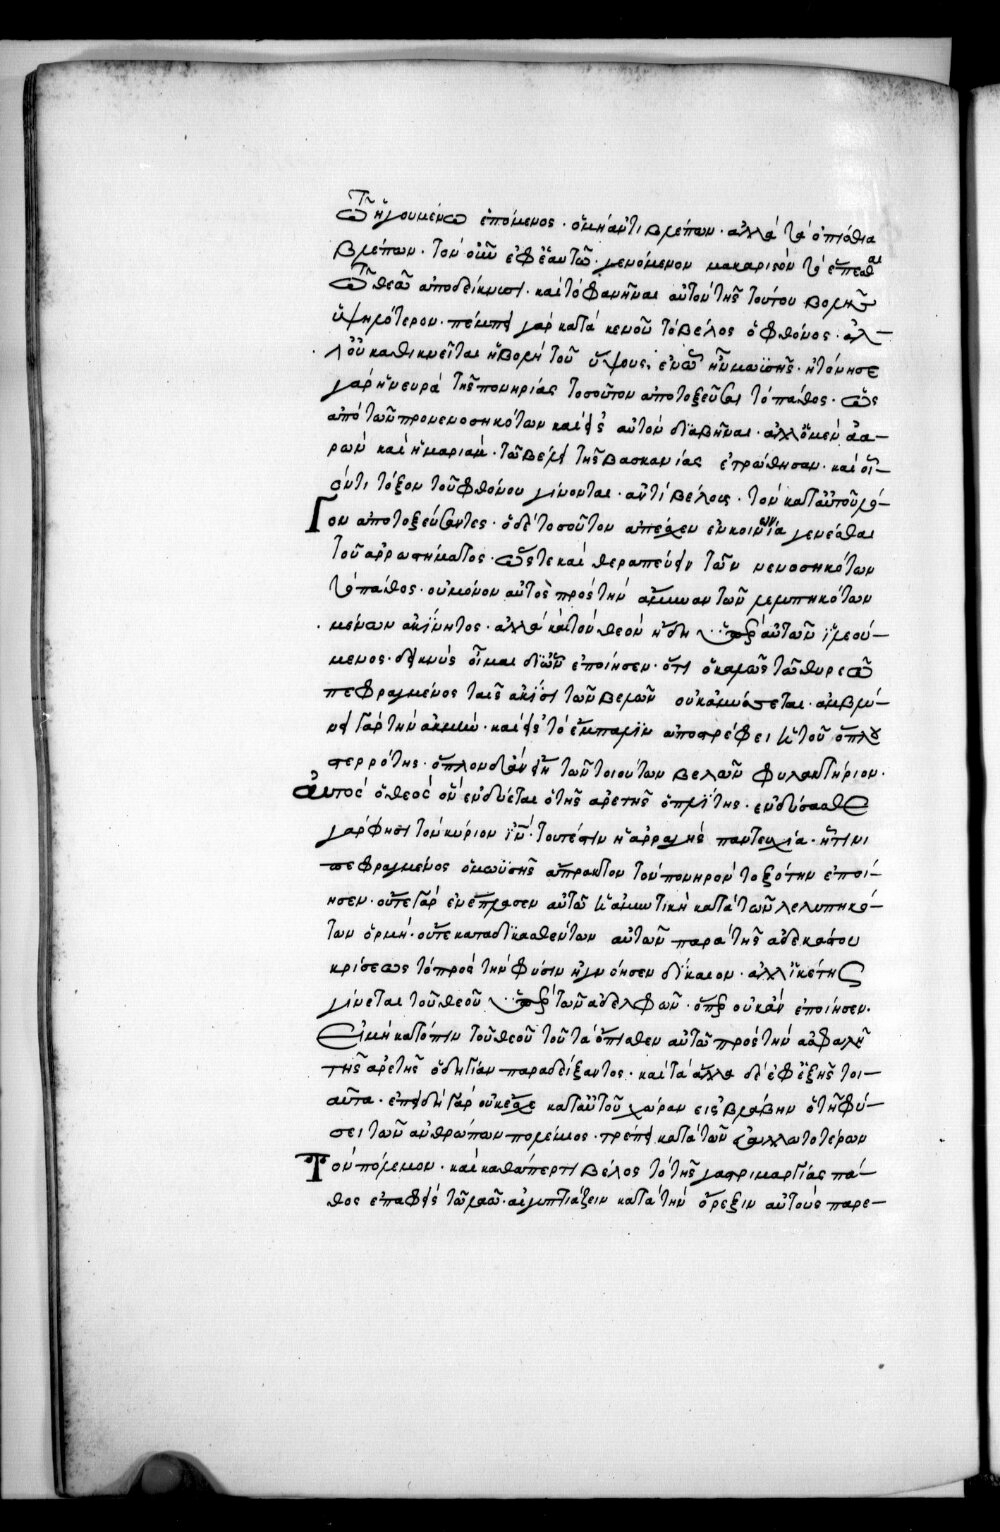 τῶ ἡγουμένω ἑπόμενος· ὁ μὴ ἀντιβλέπων· ἀλλὰ τὰ ὀπίσθια
βλέπων· τὸν οὖν ἐφ' ἑαυτῶ· γενόμενον μακαριστὸν τὸ ἕπεσθαι
τῶ θεῶ ἀποδείκνυσι· καὶ τὸ φανῆναι αὐτὸν τῆς τούτου βολῆς
ὑψηλότερον· πέμπει γὰρ κατὰ κενοῦ τὸ βέλος ὁ φθόνος· ἀλ-
λ' οὐ καθικνεῖται ἡ βολὴ τοῦ ὕψους, ἐν ᾧ ἦν μωϋσῆς· ἠτόνησε
γὰρ ἡ νευρὰ τῆς πονηρίας τοσοῦτον ἀποτοξεῦσαι τὸ πάθος· ὡς
ἀπὸ τῶν προνενοσηκότων καὶ εἰς αὐτὸν διαβῆναι· ἀλλ' ὁ μὲν ἀα-
ρὼν καὶ ἡ μαριὰμ· τῶ βέλει τῆς βασκανίας ἐτρώθησαν· καὶ οἱ-
ονεὶ τόξον τοῦ φθόνου γίνονται· ἀντὶ βέλους· τὸν κατ' αὐτοῦ λό-
γον ἀποτοξεύσαντες· ὁ δὲ τοσοῦτον ἀπέσχεν ἐν κοινωνία γενέσθαι
τοῦ ἀρρωστήματος· ὥστε καὶ θεραπεύειν τῶν νενοσηκότων
τὸ πάθος· οὐ μόνον αὐτὸς πρὸς τὴν ἄμυναν τῶν λελυπηκότων
μένων ἀκίνητος· ἀλλὰ καὶ τὸν θεὸν ἤδη ὑπὲρ αὐτῶν ἱλεού-
μενος· δεικνὺς οἶμαι δι' ὧν ἐποίησεν· ὅτι ὁ καλῶς τῶ θυρεῶ
πεφραγμένος ταῖς ἀκίσι τῶν βελῶν οὐκ ἀμύσσεται· ἀμβλύ-
νει γὰρ τὴν ἀκμὴν· καὶ εἰς τὸ ἔμπαλιν ἀποστρέφει ἡ τοῦ ὅπλου
στερρότης· ὅπλον δ' ἂν εἴη τῶν τοιούτων βελῶν φυλακτήριον·
αὐτὸς ὁ θεὸς ὃν ἐνδύεται ὁ τῆς ἀρετῆς ὁπλίτης· ἐνδύσασθε
γάρ φησι τὸν κύριον ἰν· τουτέστιν ἡ ἀρραγὴς παντευχία· ἥτινι
πεφραγμένος ὁ μωϋσῆς ἄπρακτον τὸν πονηρὸν τοξότην ἐποί-
ησεν· οὔτε γὰρ ἐνέπεσεν αὐτῶ ἡ ἀμυντικὴ κατὰ τῶν λελυπηκό-
των ὁρμὴ· οὔτε καταδικασθέντων αὐτῶν παρὰ τῆς ἀδεκάστου
κρίσεως τὸ πρὸς τὴν φύσιν ἠγνόησεν δίκαιον· ἀλλ' ἱκέτης
γίνεται τοῦ θεοῦ ὑπὲρ τῶν ἀδελφῶν· ὅπερ οὐκ ἂν ἐποίησεν·
εἰ μὴ κατόπιν τοῦ θεοῦ τοῦ τὰ ὄπισθεν αὐτῶ πρὸς τὴν ἀσφαλῆ
τῆς ἀρετῆς ὁδηγίαν παραδείξαντος· καὶ τὰ ἄλλα δὲ ἐφεξῆς τοι-
αῦτα· ἐπειδὴ γὰρ οὐκ ἔσχε κατ' αὐτοῦ χώραν εἰς βλάβην ὁ τῆ φύ-
σει τῶν ἀνθρώπων πολέμιος· τρέπει κατὰ τῶν εὐαλωτοτέρων
τὸν πόλεμον· καὶ καθάπερ τι βέλος τὸ τῆς γαστριμαργίας πά-
θος ἐπαφεὶς τῶ λαῶ· αἰγυπτιάζειν κατὰ τὴν ὄρεξιν αὐτοὺς παρε-